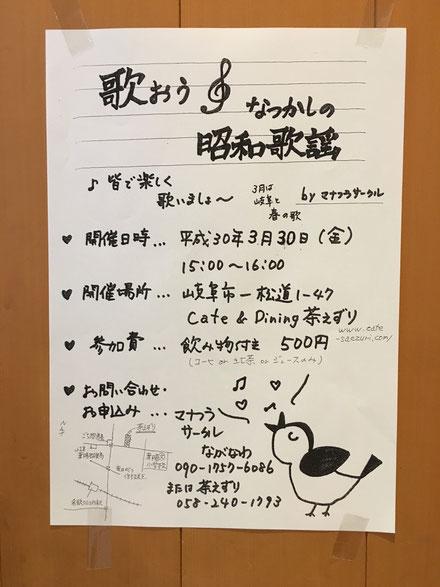 歌おう
なつかしの
昭和歌謡
♪ 皆で楽しく
歌いましょ〜
3月は
岐阜と
春の歌
by マナブラサークル
♥ 開催日時… 平成30年3月30日(金)
15:00〜16:00
♥ 開催場所… 岐阜市一松道1-47
Cafe & Dining 茶えずり
www.cafe
-saezuri.com/
♥ 参加費… 飲み物付き 500円
♥ お問い合わせ・
お申込み… マナブラ
サークル
ながなわ
090-1757-6086
または茶えずり
058-240-1793
茶えずり